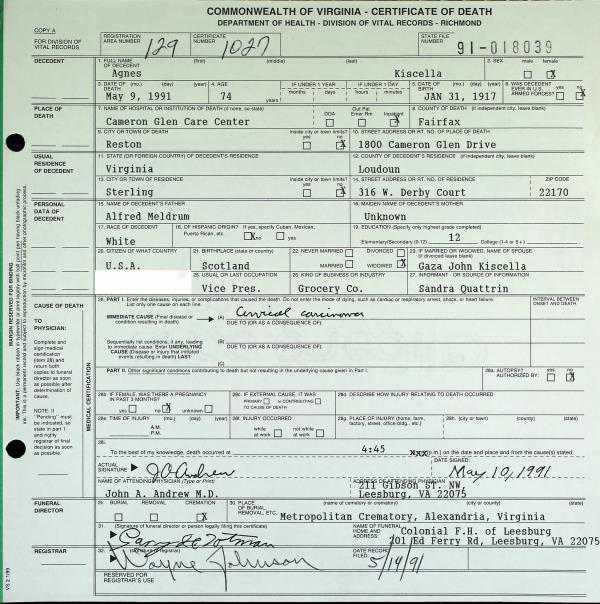 COMMONWEALTH OF VIRGINIA - CERTIFICATE OF DEATH
DEPARTMENT OF HEALTH - DIVISION OF VITAL RECORDS - RICHMOND
COPY A
FOR DIVISION OF VITAL RECORDS
REGISTRATION AREA NUMBER 129 CERTIFICATE NUMBER 1027 STATE FILE NUMBER 91-018039
DECEDENT
1. FULL NAME OF DECEDENT (first) (middle) (last) 2. SEX male female
Agnes Kiscella X
3. DATE OF DEATH (mo.) (day) (year) 4. AGE IF UNDER 1 YEAR IF UNDER 1 DAY 5. DATE OF BIRTH (mo.) (day) (year) 6. WAS DECEDENT EVER IN U.S. ARMED FORCES? yes no
months days hours minutes
May 9, 1991 74 years JAN 31, 1917 X
PLACE OF DEATH
7. NAME OF HOSPITAL OR INSTITUTION OF DEATH (if none, so state) DOA Out Pat. Emer Rm Inpatient 8. COUNTY OF DEATH (if independent city, leave blank)
Cameron Glen Care Center X Fairfax
9. CITY OR TOWN OF DEATH inside city or town limits? yes no 10. STREET ADDRESS OR RT. NO. OF PLACE OF DEATH
Reston X 1800 Cameron Glen Drive
USUAL RESIDENCE OF DECEDENT
11. STATE (OR FOREIGN COUNTRY) OF DECEDENT'S RESIDENCE 12. COUNTY OF DECEDENT'S RESIDENCE (if independent city, leave blank)
Virginia Loudoun
13. CITY OR TOWN OF RESIDENCE inside city or town limits? yes no 14. STREET ADDRESS OR RT. NO. OF RESIDENCE ZIP CODE
Sterling X 316 W. Derby Court 22170
PERSONAL DATA OF DECEDENT
15. NAME OF DECEDENT'S FATHER 16. MAIDEN NAME OF DECEDENT'S MOTHER
Alfred Meldrum Unknown
17. RACE OF DECEDENT 18. OF HISPANIC ORIGIN? If yes, specify Cuban, Mexican, Puerto Rican, etc. 19. EDUCATION (Specify only highest grade completed)
White X no yes Elementary/Secondary (0-12) 12 College (1-4 or 5+)
20. CITIZEN OF WHAT COUNTRY 21. BIRTHPLACE (state or country) 22. NEVER MARRIED DIVORCED 23. IF MARRIED OR WIDOWED, NAME OF SPOUSE (if divorced leave blank)
U.S.A. Scotland MARRIED WIDOWED X Gaza John Kiscella
25. USUAL OR LAST OCCUPATION 26. KIND OF BUSINESS OR INDUSTRY 27. INFORMANT - OR SOURCE OF INFORMATION
Vice Pres. Grocery Co. Sandra Quattrin
CAUSE OF DEATH
TO PHYSICIAN:
Complete and sign medical certification (item 28) and return both copies to funeral director as soon as possible after determination of cause.
NOTE: If "Pending" must be indicated, so state in part 1 and notify registrar of final decision as soon as possible.
MEDICAL CERTIFICATION
28. PART I. Enter the diseases, injuries, or complications that caused the death. Do not enter the mode of dying, such as cardiac or respiratory arrest, shock, or heart failure. List only one cause on each line. INTERVAL BETWEEN ONSET AND DEATH
IMMEDIATE CAUSE (Final disease or condition resulting in death) (A) Cervical carcinoma
DUE TO (OR AS A CONSEQUENCE OF):
Sequentially list conditions, if any, leading to immediate cause. Enter UNDERLYING CAUSE (Disease or injury that initiated events resulting in death) LAST (B)
DUE TO (OR AS A CONSEQUENCE OF):
(C)
PART II. Other significant conditions contributing to death but not resulting in the underlying cause given in Part I. 28a. AUTOPSY? AUTHORIZED BY: yes no X
28b. IF FEMALE, WAS THERE A PREGNANCY IN PAST 3 MONTHS? yes no X unknown 28c. IF EXTERNAL CAUSE, IT WAS PRIMARY or CONTRIBUTING TO CAUSE OF DEATH 28d. DESCRIBE HOW INJURY RELATING TO DEATH OCCURRED
28e. TIME OF INJURY (mo.) (day) (year) A.M. P.M. 28f. INJURY OCCURRED while at work not while at work 28g. PLACE OF INJURY (home, farm, factory, street, office bldg., etc.) 28h. (city or town) (county) (state)
28i. To the best of my knowledge, death occurred at 4:45 xxx (p.m.) on the date and place and from the cause(s) stated.
ACTUAL SIGNATURE J A Andrew DATE SIGNED: May 10, 1991
NAME OF ATTENDING PHYSICIAN (Type or Print) ADDRESS OF ATTENDING PHYSICIAN
John A. Andrew M.D. 211 Gibson ST. NW, Leesburg, VA 22075
FUNERAL DIRECTOR
29. BURIAL REMOVAL CREMATION X 30. PLACE OF BURIAL, REMOVAL, ETC. (name of cemetery or crematory) (city or county) (state)
Metropolitan Crematory, Alexandria, Virginia
31. (Signature of funeral director or person legally filing this certificate) NAME OF FUNERAL HOME AND ADDRESS: Colonial F.H. of Leesburg
201 Ed Ferry Rd, Leesburg, VA 22075
REGISTRAR
32. (signature of registrar) Wayne Johnson DATE RECORD FILED: 5/14/91
RESERVED FOR REGISTRAR'S USE
VS 2 1/89
MARGIN RESERVED FOR BINDING